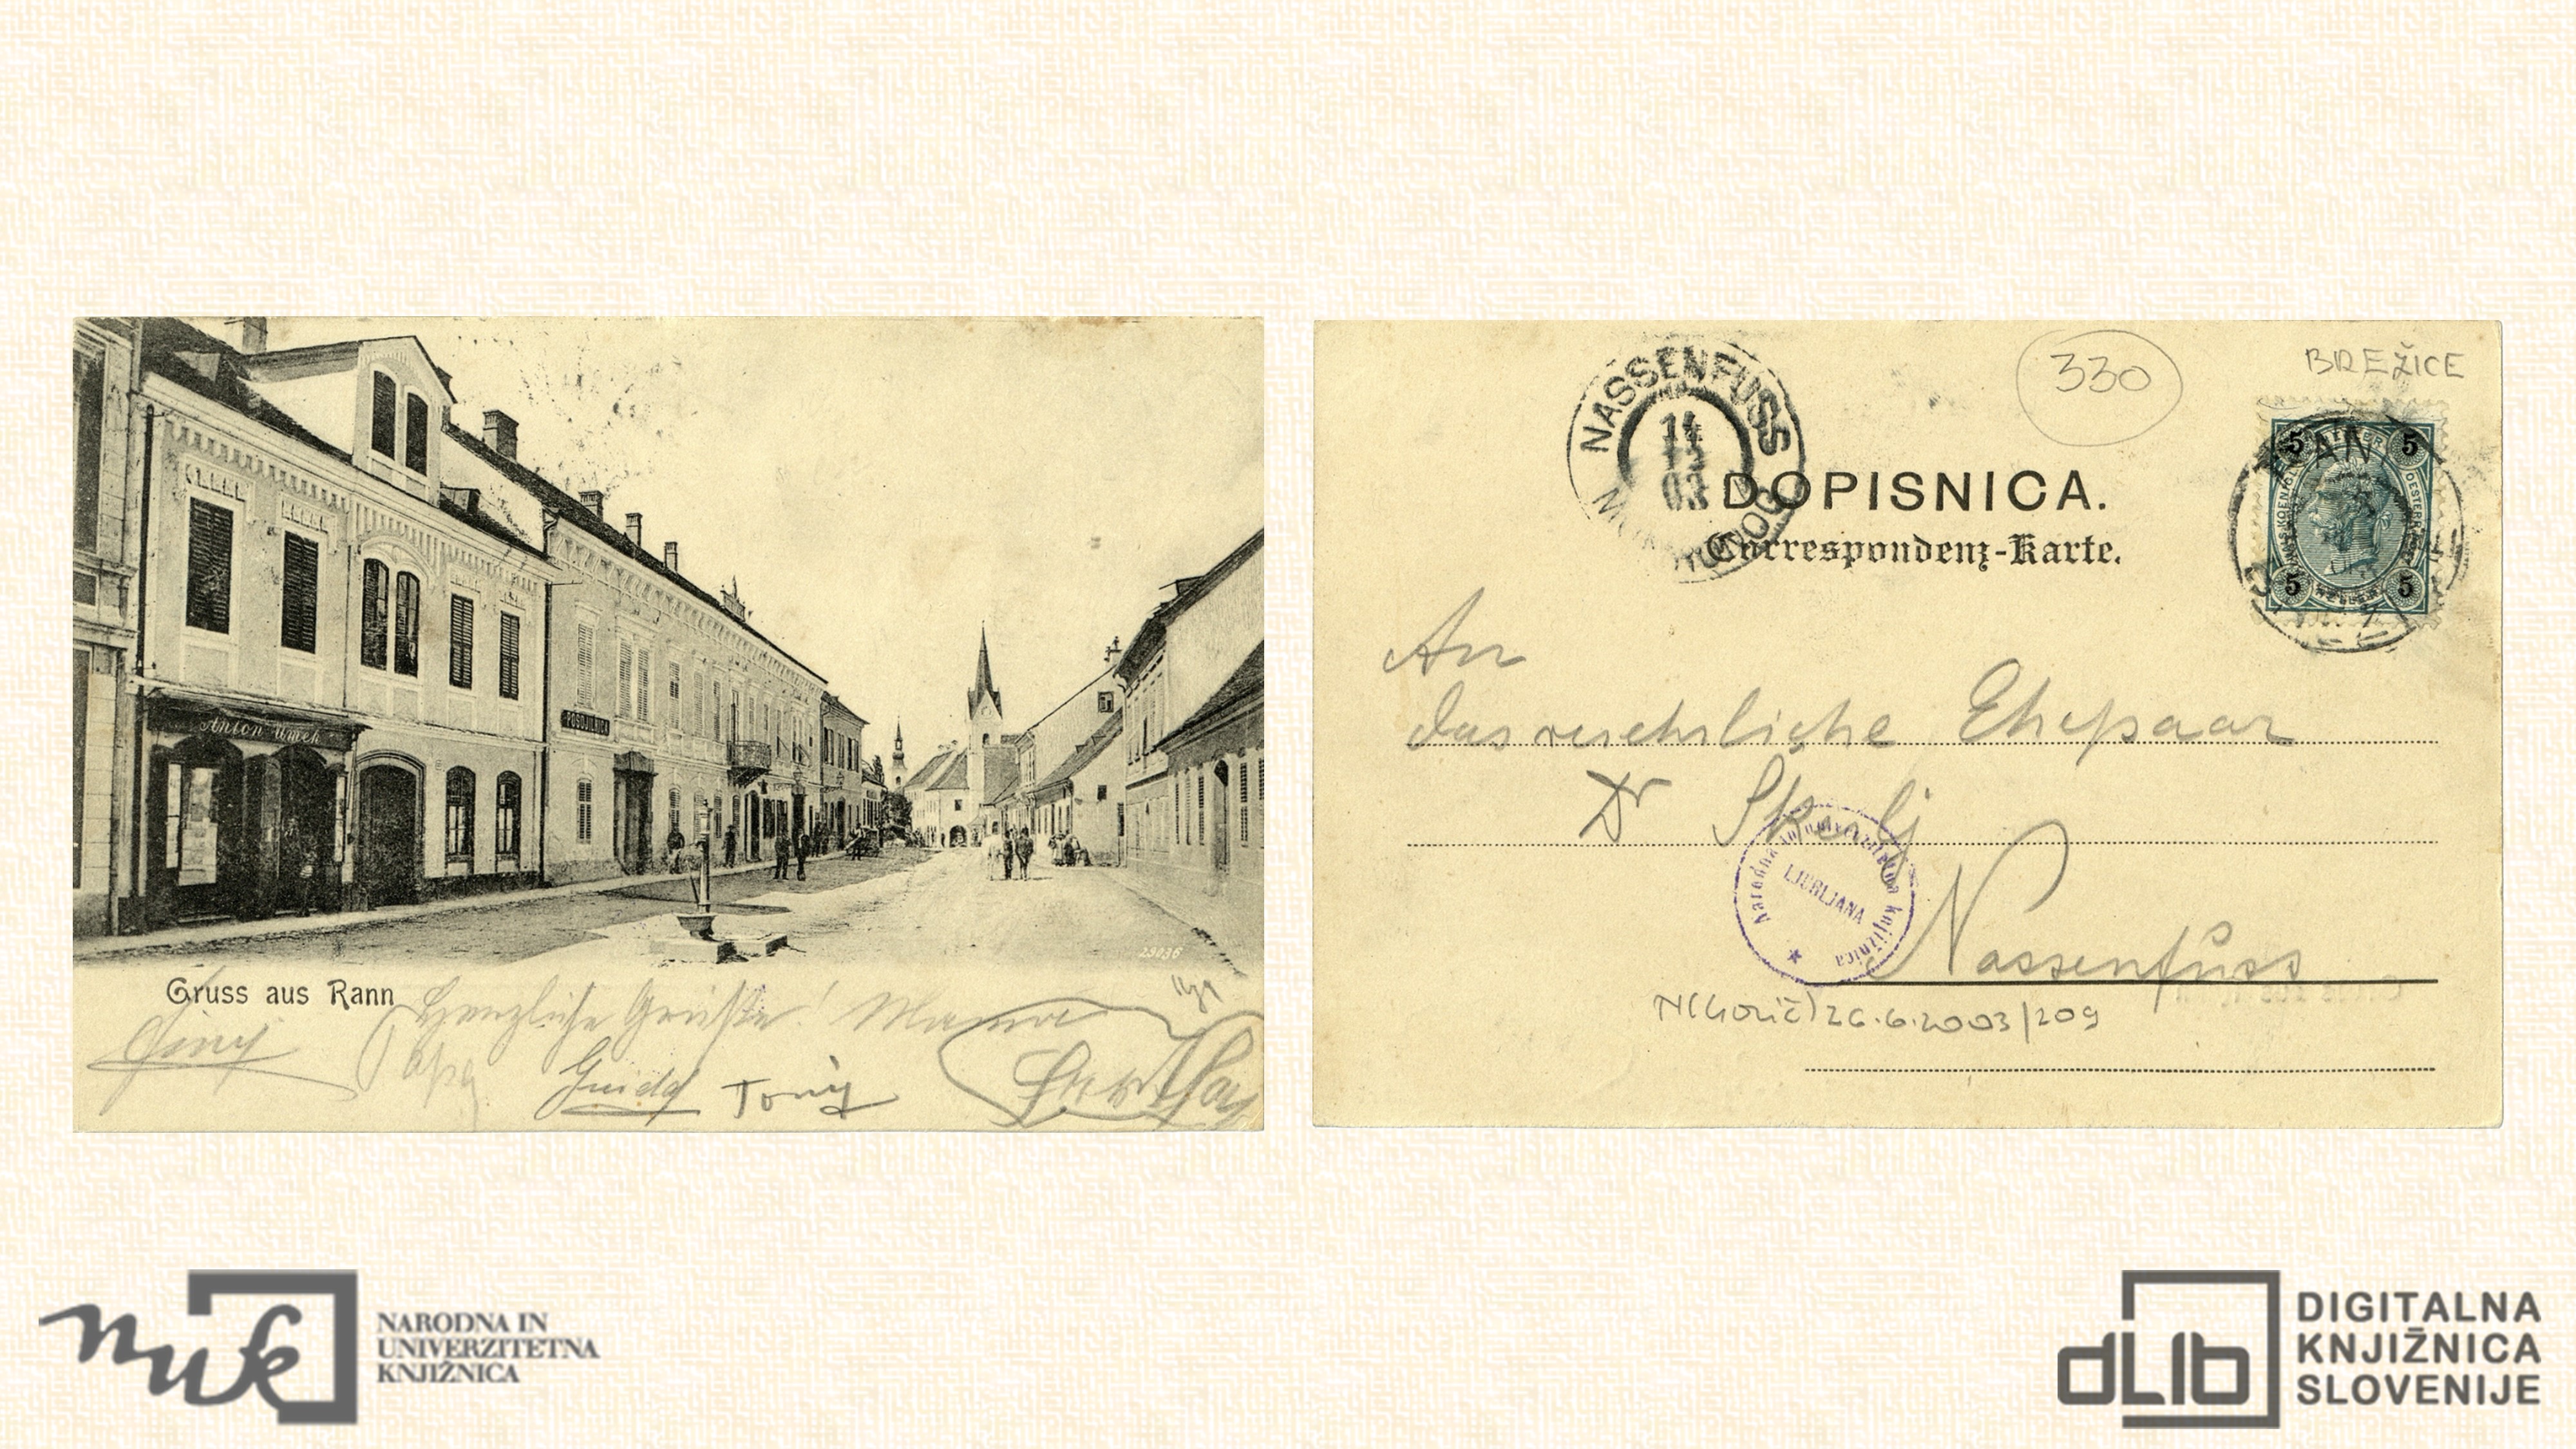 Anton Umek
POSOJILNICA
29036
Gruss aus Rann
Herzliche Grüsse! Mama
Papa
Guido Tony
330
BREŽICE
NASSENFUSS
14
03
DOPISNICA.
Correspondenz-Karte.
RANN
5 5
5 5
An
das Ehepaar
Dr Skerlj
Narodna in univerzitetna knjižnica
LJUBLJANA
Nassenfuss
N(Gorič) 26.6.2003/209
nuk
NARODNA IN
UNIVERZITETNA
KNJIŽNICA
dLib
DIGITALNA
KNJIŽNICA
SLOVENIJE